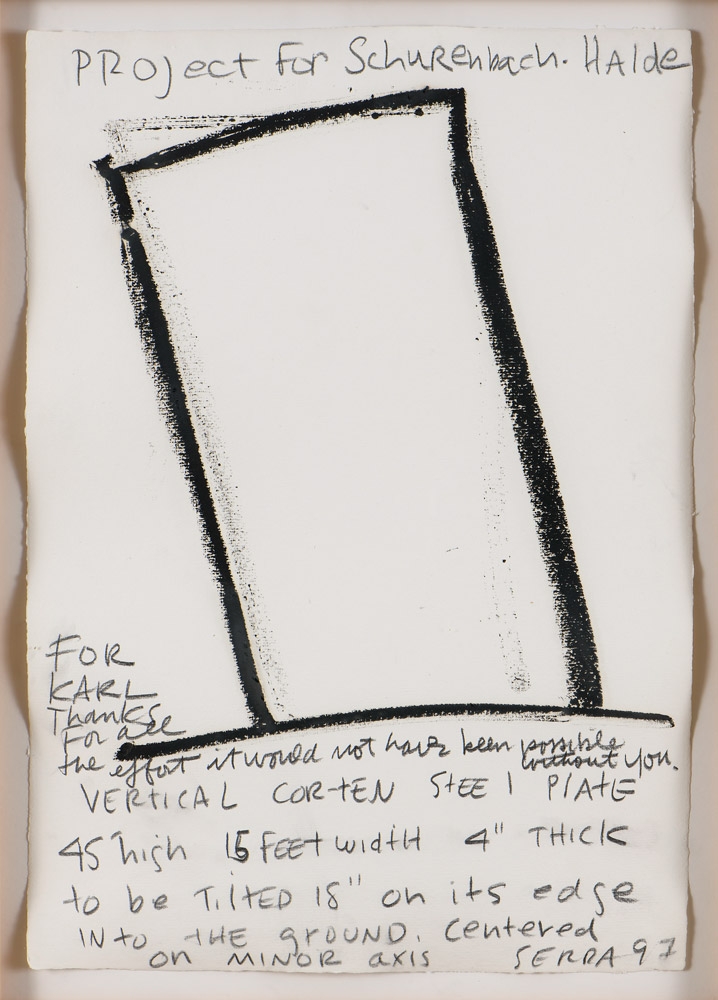 PROject For Schurenbach. HAlde
FOR
KARL
Thanks
For all
the effort it would not have been possible
without you.
VERTICAL COR-TEN STEEl PlATE
45' high 15 FEET width 4" THICK
to be TilTED 18" on its edge
INto THE gROUND. Centered
on MINOR axis SERRA 97